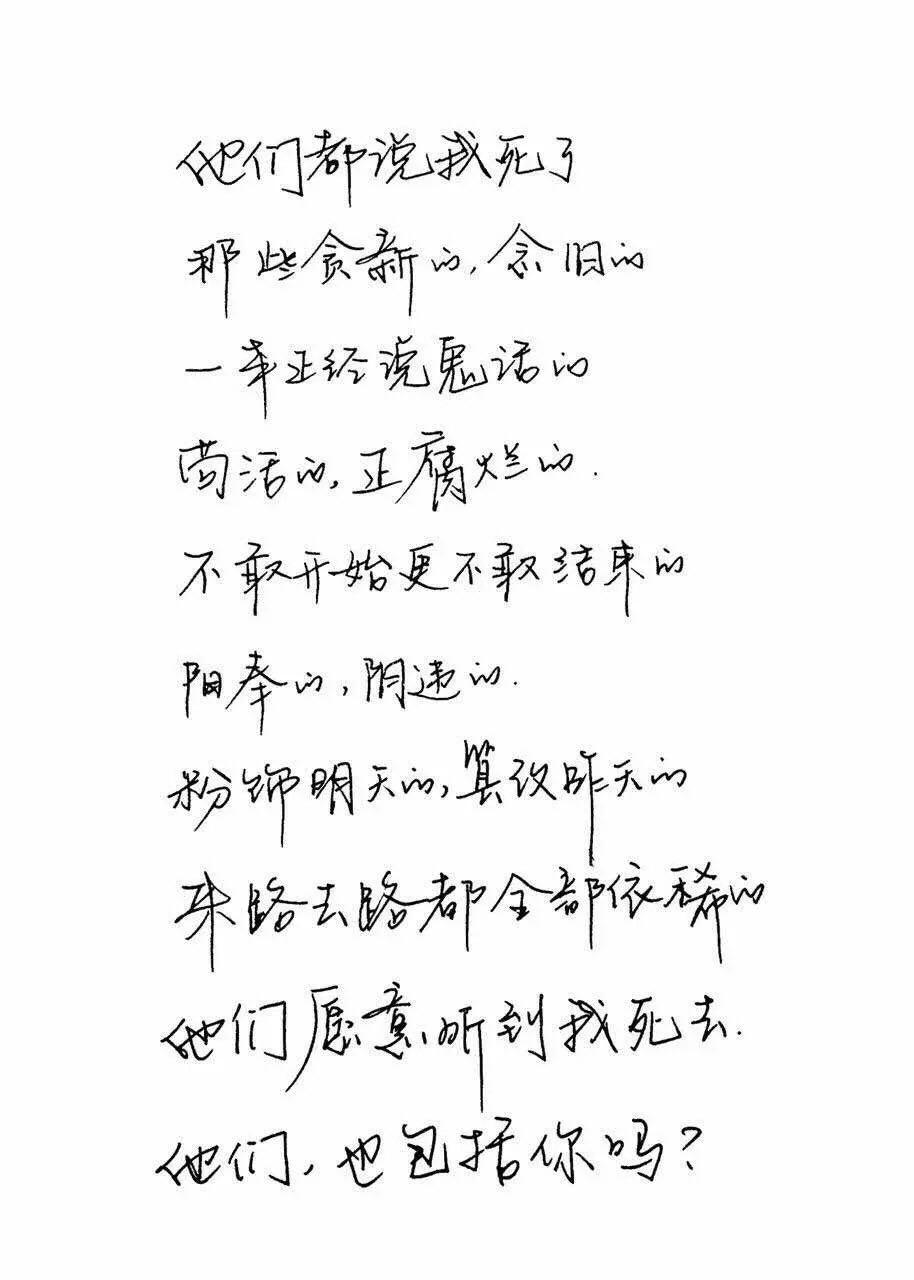 他们都说我死了
那些贪新的,念旧的
一本正经说鬼话的
苟活的,正腐烂的.
不敢开始更不敢结束的
阳奉的,阴违的.
粉饰明天的,篡改昨天的
来路去路都全部依稀的
他们愿意听到我死去.
他们,也包括你吗?